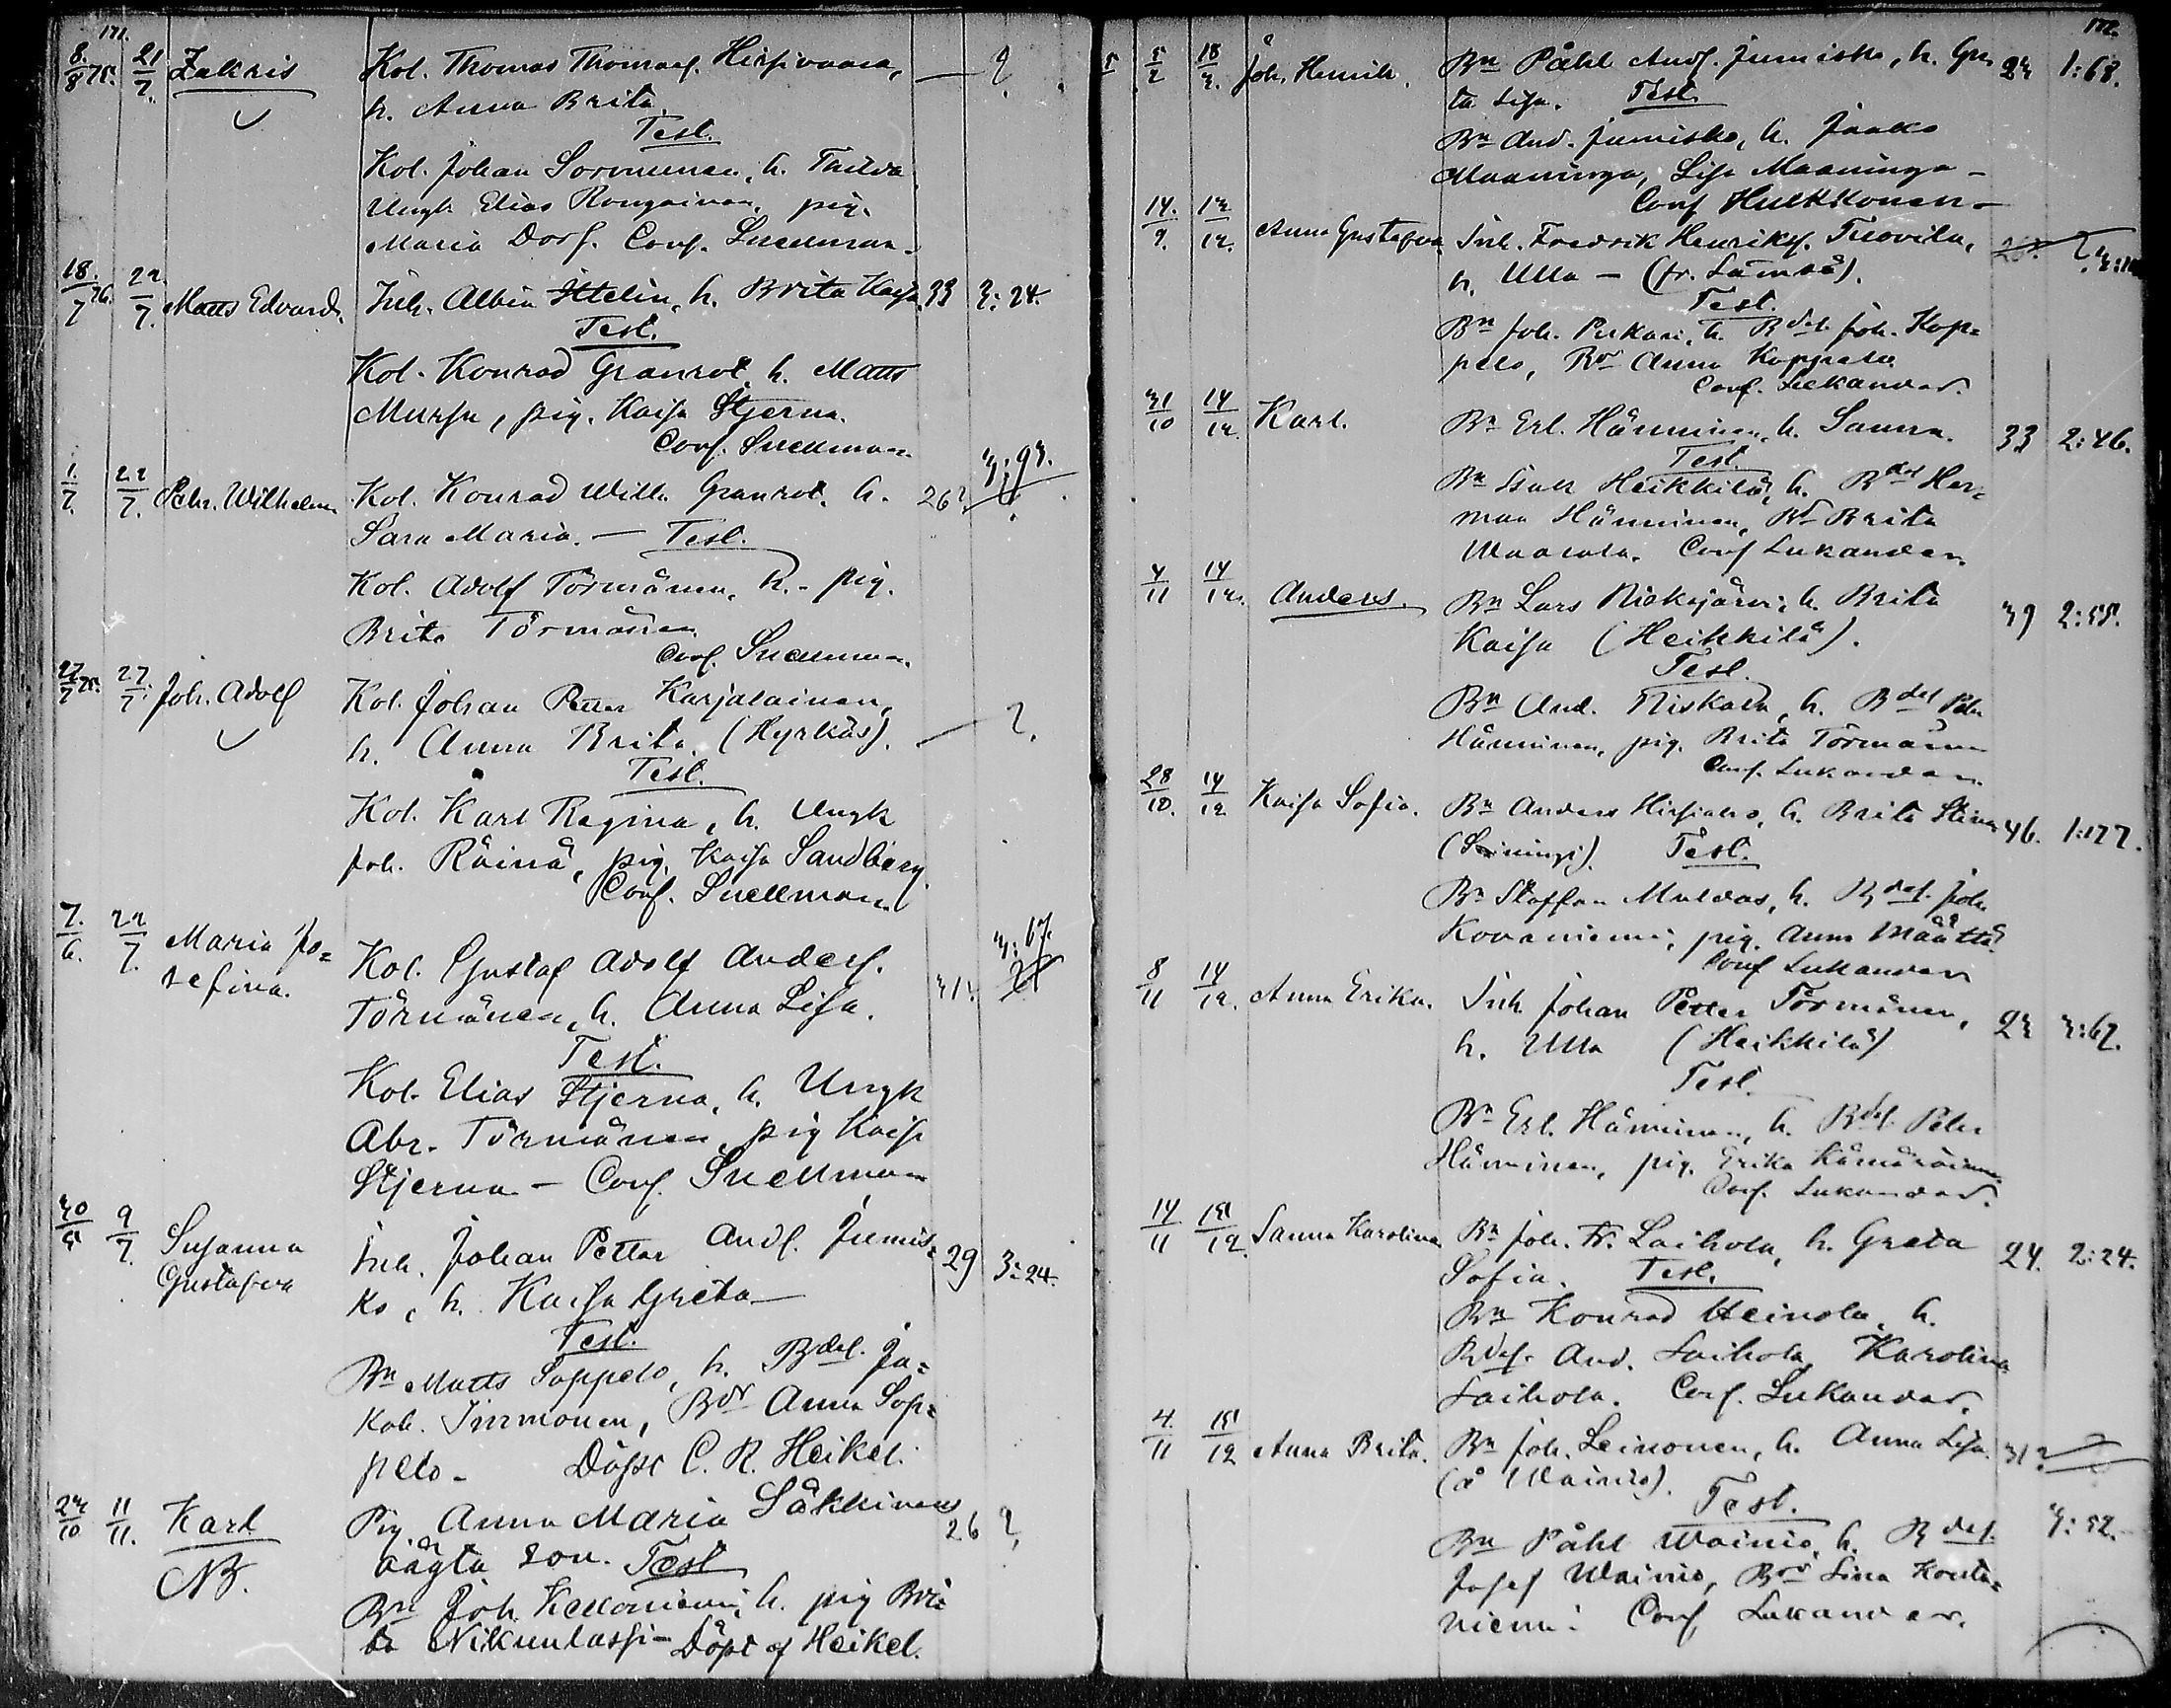 171.
8/8 75. 21/7. Zakris Kol. Thomas Thomasf. Hirsivaara, — ?
h. Anna Brita.
Test.
Kol. Johan Sormunen, h. Thilda
Ungk. Elias Rongainen, pig.
Maria Dorf. Conf. Snellman.
18/7 76. 22/7. Matts Edvard. Inh. Albin Ittelin, h. Brita Kajsa 33 3:24.
Test.
Kol. Konrad Granrot, h. Matts
Mursu, pig. Kajsa Stjerna.
Conf. Snellman.
1/7. 22/7. Pehr. Wilhelm Kol. Konrad Wilh. Granrot. h. 26? 3:93.
Sara Maria. — Test.
Kol. Adolf Törmänen, h. - pig.
Brita Törmänen
Conf. Snellman.
27/7 75. 27/7. Joh. Adolf Kol. Johan Petter Karjalainen, — ?
h. Anna Brita. (Hyrkäs).
Test.
Kol. Karl Regina, h. Ungk
Joh. Räinä, pig. Kajsa Sandberg.
Conf. Snellman
7/6. 22/7. Maria Jo= Kol. Gustaf Adolf Andersf. 31? 3:67.
sefina. Törmänen, h. Anna Lisa.
Test.
Kol. Elias Stjerna, h. Ungk
Abr. Törmänen, pig Kajsa
Stjerna — Conf. Snellman
30/5 9/7. Susanna Inh. Johan Petter Andf. Jumis= 29 3:24.
Gustafva ko, h. Kajsa Greta —
Test.
Bn Matts Soppelo, h. Bdes. Ja=
kob. Immonen, Bdr Anna Sop=
pelo — Döpt C. R. Heikel.
23/10 11/11. Karl Pig. Anna Maria Säkkinens 26 ?
NB. oägta son. Test
Bn Joh. Kelloniemi, h. pig Bri=
ta Nikunlassi — Döpt af Heikel.
172.
5 5/2 18/3. Joh. Henrik. Bn Påhl Andf. Jumisko, h. Gre 23 1:68.
ta Lisa. Test.
Bn And. Jumisko, h. Jaako
Maaninga, Lisa Maaninga —
Conf Hulkkonen —
14/9. 13/12. Anna Gustafva Inh. Fredrik Henriksf. Tuovila,
h. Ulla — (fr. Lämsä).
Test.
Bn Joh. Pukari, h. Bdes. Joh. Kop=
pelo, Bdr Anna Koppelo
Conf. Lukander.
31/10 14/12. Karl. Bn Erl. Hänninen, h. Sanna. 33 2:46.
Test.
Bn Isak Heikkilä, h. Bdes Her=
man Hänninen, Bdr Brita
Conf Lukander.
4/11 14/12. Anders. Bn Lars Niskajärvi, h. Brita 39 2:55.
Kajsa (Heikkilä).
Test.
Bn And. Niskala, h. Bdes Pehr
Hänninen, pig. Brita Törmänen
Conf. Lukander
28/10. 14/12 Kajsa Sofia. Bn Anders Hirsiaho, h. Brita Stina 46. 1:177.
Test.
Bn Staffan Mulvas, h. Bdes. Joh.
Kovaniemi; pig. Anna Määttä
Conf Lukander
8/11 14/12. Anna Erika. Inh. Johan Petter Törmänen, 23 3:67.
h. Ulla (Heikkilä)
Test.
Bn Erl. Hänninen, h. Bdes. Pehr
Hänninen, pig. Erika Kämäräinen
Conf. Lukander.
14/11 15/12. Sanna Karolina Bn Joh. Fr. Laihola, h. Greta 24. 2:24.
Sofia. Test.
Bn Konrad Heinola, h.
Bdes. And. Laihola, Karolina
Laihola. Conf. Lukander.
4/11 15/12 Anna Brita. Bn Joh. Leinonen, h. Anna Lisa 31?
(å Wainio).
Test. 3:52.
Bn Påhl Wainio, h. Bdes.
Josef Wainio, Bdr Lina Konta=
niemi. Conf Lukander.